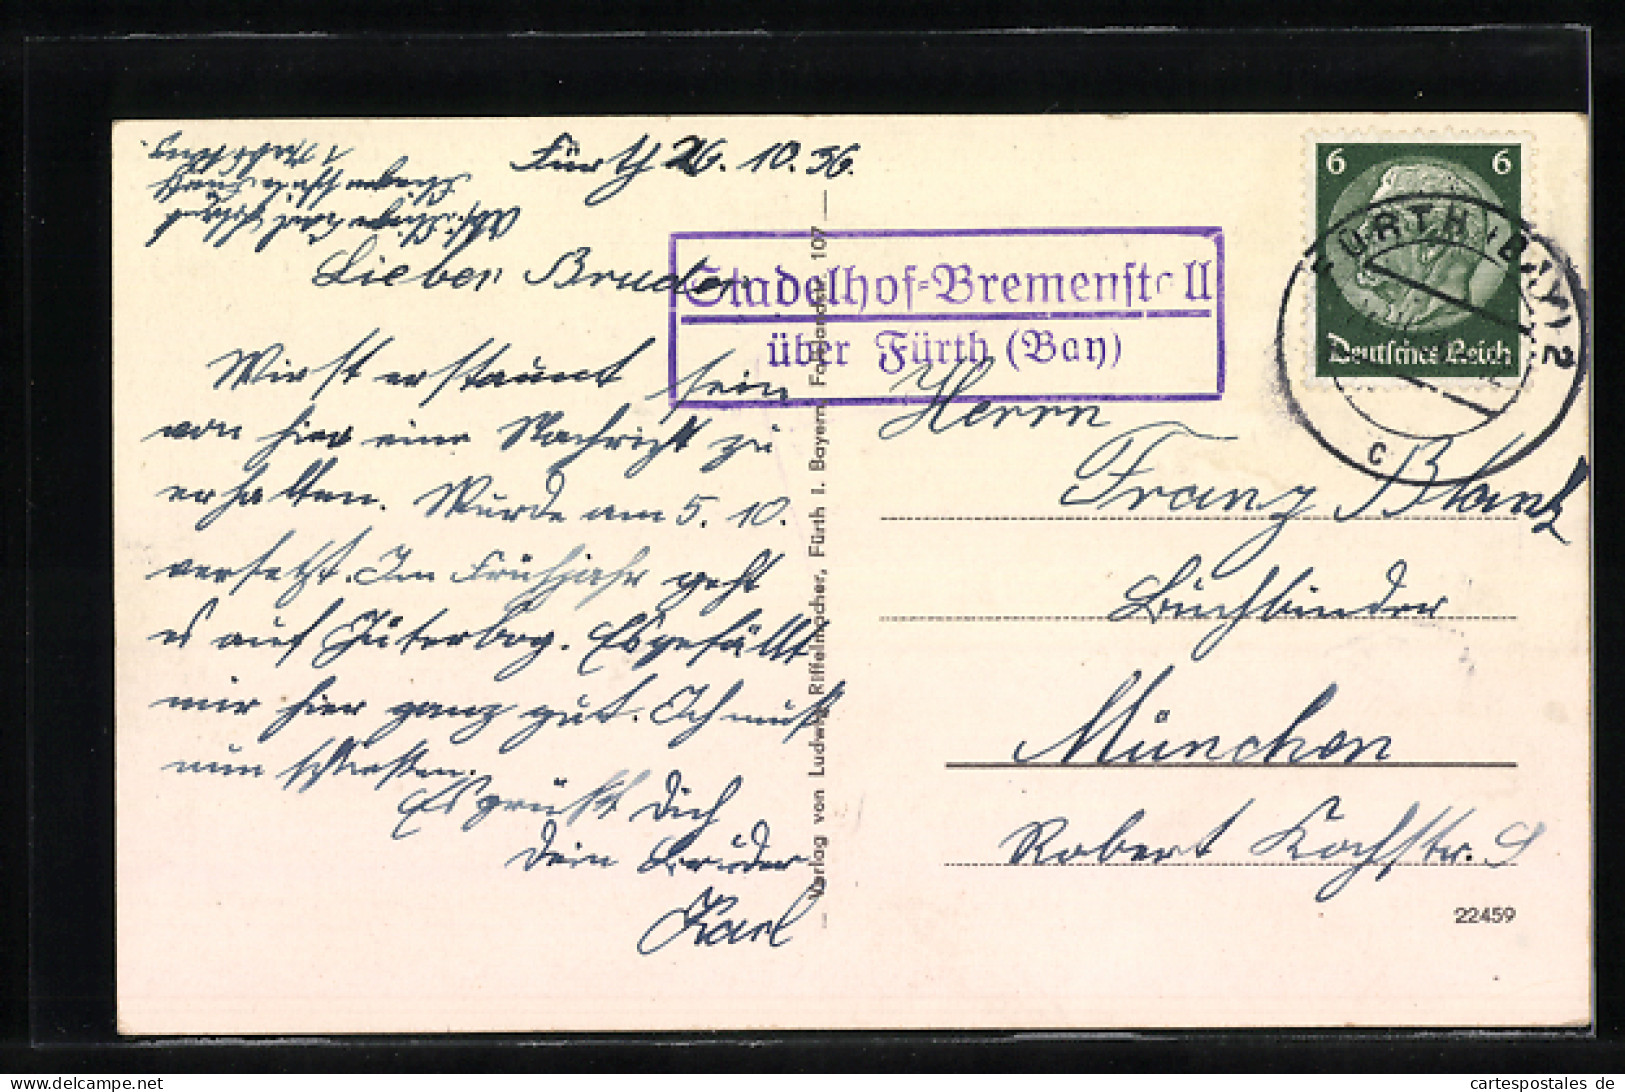 Fürth 26.10.36.
Lieber Bruder
Wirst erstaunt sein
von hier eine Nachricht zu
erhalten. Wurde am 5. 10.
versetzt. Im Frühjahr geht
es auf Jüterbog. Es gefällt
mir hier ganz gut. Ich muß
nun schließen.
Es grüßt Dich
Dein Bruder
Karl
Stadelhof-Bremenstall
über Fürth (Bay)
6 6
Deutsches Reich
FÜRTH (BAY) 2
c
Herrn
Franz Blank
Buchbinder
München
Robert Kochstr. 9
22459
— Verlag von Ludwig Riffelmacher, Fürth i. Bayern, 107 —
cartespostales de